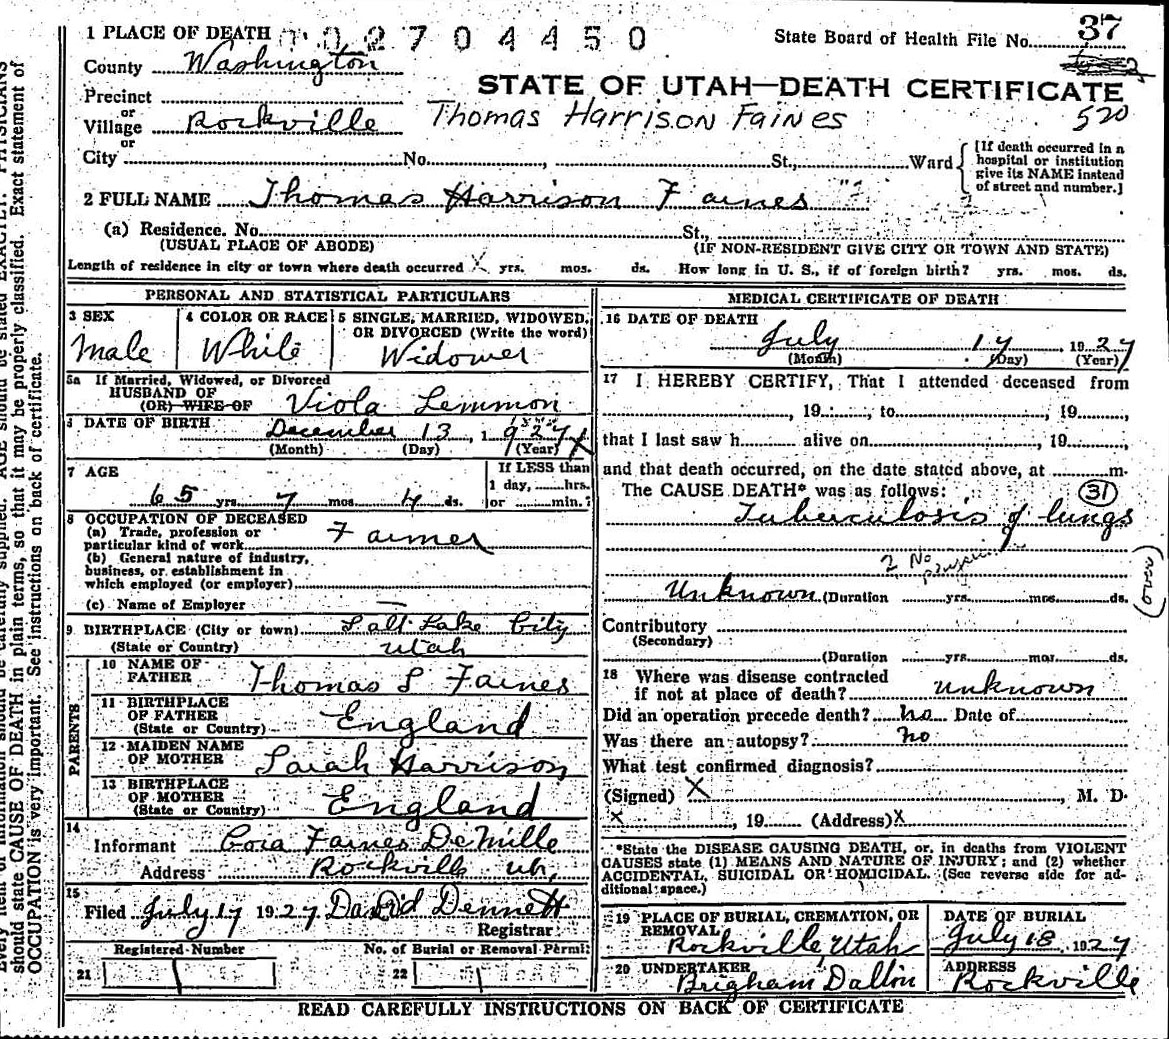 1 PLACE OF DEATH 02704450
State Board of Health File No. 37
County Washington
STATE OF UTAH—DEATH CERTIFICATE
Precinct
or
Village Rockville Thomas Harrison Faines 520
or
City No. St., Ward
[If death occurred in a
hospital or institution
give its NAME instead
of street and number.]
2 FULL NAME Thomas Harrison Faines
(a) Residence. No. St.,
(USUAL PLACE OF ABODE) (IF NON-RESIDENT GIVE CITY OR TOWN AND STATE)
Length of residence in city or town where death occurred X yrs. mos. ds. How long in U. S., if of foreign birth? yrs. mos. ds.
PERSONAL AND STATISTICAL PARTICULARS
3 SEX 4 COLOR OR RACE 5 SINGLE, MARRIED, WIDOWED,
OR DIVORCED (Write the word)
Male White Widower
5a If Married, Widowed, or Divorced
HUSBAND OF
(OR) WIFE OF Viola Lemmon
6 DATE OF BIRTH December 13, 1927 X
(Month) (Day) (Year)
7 AGE If LESS than
1 day, hrs.
65 yrs. 7 mos. 4 ds. or min.?
8 OCCUPATION OF DECEASED
(a) Trade, profession or
particular kind of work Farmer
(b) General nature of industry,
business, or establishment in
which employed (or employer)
(c) Name of Employer —
9 BIRTHPLACE (City or town) Salt Lake City
(State or Country) Utah
PARENTS
10 NAME OF
FATHER Thomas L Faines
11 BIRTHPLACE
OF FATHER
(State or Country) England
12 MAIDEN NAME
OF MOTHER Sarah Harrison
13 BIRTHPLACE
OF MOTHER
(State or Country) England
14
Informant Cora Faines DeMille
Address Rockville Ut,
15
Filed July 17 1927 David Dennett
Registrar
Registered Number No. of Burial or Removal Permit
21 22
MEDICAL CERTIFICATE OF DEATH
16 DATE OF DEATH
July 17, 1927
(Month) (Day) (Year)
17 I HEREBY CERTIFY, That I attended deceased from
, 19 , to , 19 ,
that I last saw h alive on , 19
and that death occurred, on the date stated above, at m.
The CAUSE DEATH* was as follows: 31
Tuberculosis of lungs
2 No
(over)
Unknown (Duration yrs. mos. ds.
Contributory
(Secondary)
(Duration yrs. mos. ds.
18 Where was disease contracted
if not at place of death? unknown
Did an operation precede death? no Date of
Was there an autopsy? no
What test confirmed diagnosis?
(Signed) X , M. D.
X , 19 (Address) X
*State the DISEASE CAUSING DEATH, or, in deaths from VIOLENT
CAUSES state (1) MEANS AND NATURE OF INJURY; and (2) whether
ACCIDENTAL, SUICIDAL OR HOMICIDAL. (See reverse side for ad-
ditional space.)
19 PLACE OF BURIAL, CREMATION, OR
REMOVAL
Rockville, Utah
DATE OF BURIAL
July 18, 1927
20 UNDERTAKER
Brigham Dalton
ADDRESS
Rockville
READ CAREFULLY INSTRUCTIONS ON BACK OF CERTIFICATE
should state CAUSE OF DEATH in plain terms, so that it may be properly classified. Exact statement of
OCCUPATION is very important. See instructions on back of certificate.